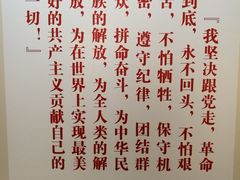 『我坚决跟党走，革命
到底，永不回头，不怕艰
苦，不怕牺牲，保守机
密，遵守纪律，团结群
众，拼命奋斗，为中华民
族的解放，为全人类的解
放，为在世界上实现最美
好的共产主义贡献自己的
一切！』